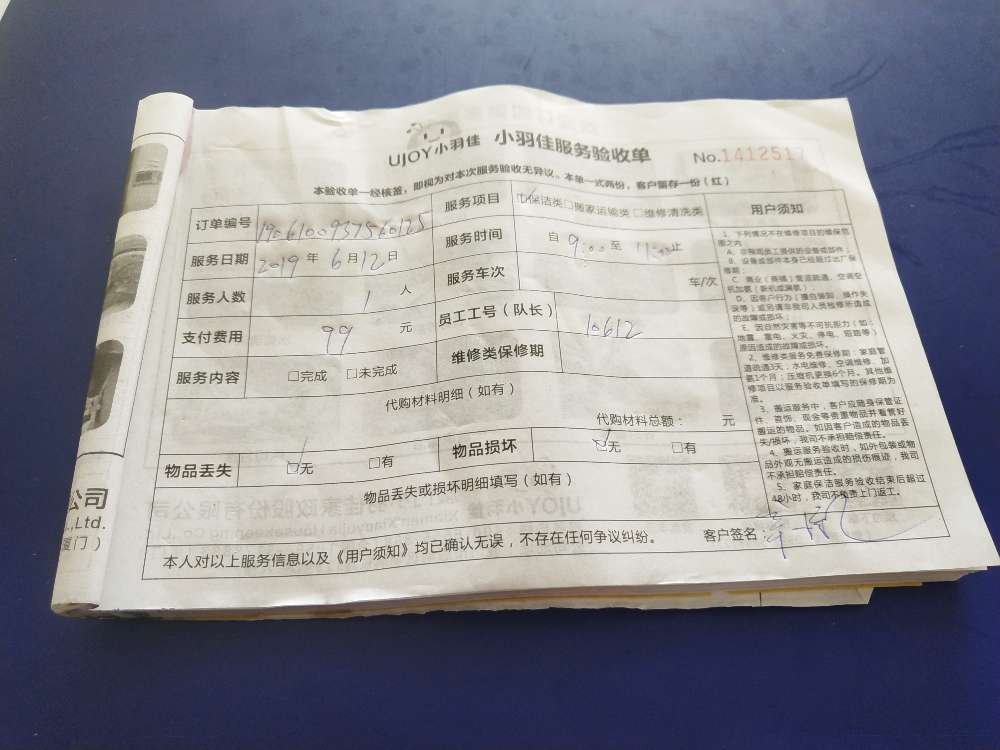 UJOY小羽佳 小羽佳服务验收单 No.1412517
本验收单一经核签，即视为对本次服务验收无异议。本单一式两份，客户留存一份（红）
订单编号 服务项目 保洁类 □搬家运输类 □维修清洗类 用户须知
服务日期 2019年6月12日 服务时间 自 9:00 至 11:00 止
服务人数 1 人 服务车次 车/次
支付费用 99 元 员工工号（队长） 10612
服务内容 □完成 □未完成 维修类保修期
代购材料明细（如有）
代购材料总额： 元
物品丢失 ☑无 □有 物品损坏 ☑无 □有
物品丢失或损坏明细填写（如有）
本人对以上服务信息以及《用户须知》均已确认无误，不存在任何争议纠纷。 客户签名：
1、下列情况不在维修项目的维保范
围之内
A、非我司员工提供的设备或部件；
B、设备或部件本身已经超过出厂保
修期；
C、商业（商铺）管道疏通，空调空
机加氨（新机或漏氨）；
D、因客户行为（擅自装卸、操作失
误等）或另请非我司人员检修所造成
的故障或损坏；
E、因自然灾害等不可抗拒力（如：
地震、雷电、火灾、停电、短路等）
原因造成的故障或损坏。
2、维修类服务免费保修期：家庭管
道疏通3天，水电维修、空调维修、加
氨1个月；压缩机更换6个月。其他维
修项目以服务验收单填写的保修期为
准。
3、搬运服务中，客户应随身保管证
件、首饰、现金等贵重物品并看管好
搬运的物品。如因客户造成的物品丢
失/损坏，我司不承担赔偿责任。
4、搬运服务验收时，如外包装或物
品外观无搬运造成的损伤痕迹，我司
不承担赔偿责任。
5、家庭保洁服务验收结束后超过
48小时，我司不负责上门返工。
公司
.,Ltd.
厦门）